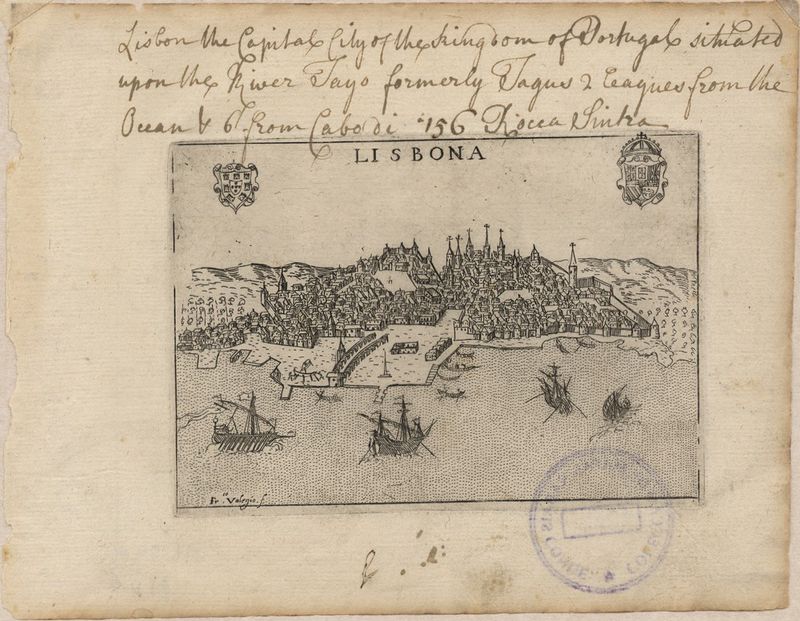 Lisbon the Capital City of the Kingdom of Portugal situated
upon the River Tayo formerly Tagus 2 leagues from the
Ocean & 6 from Cabo di 156 Rocca Sintra
LISBONA
Fr.co Valegio f.